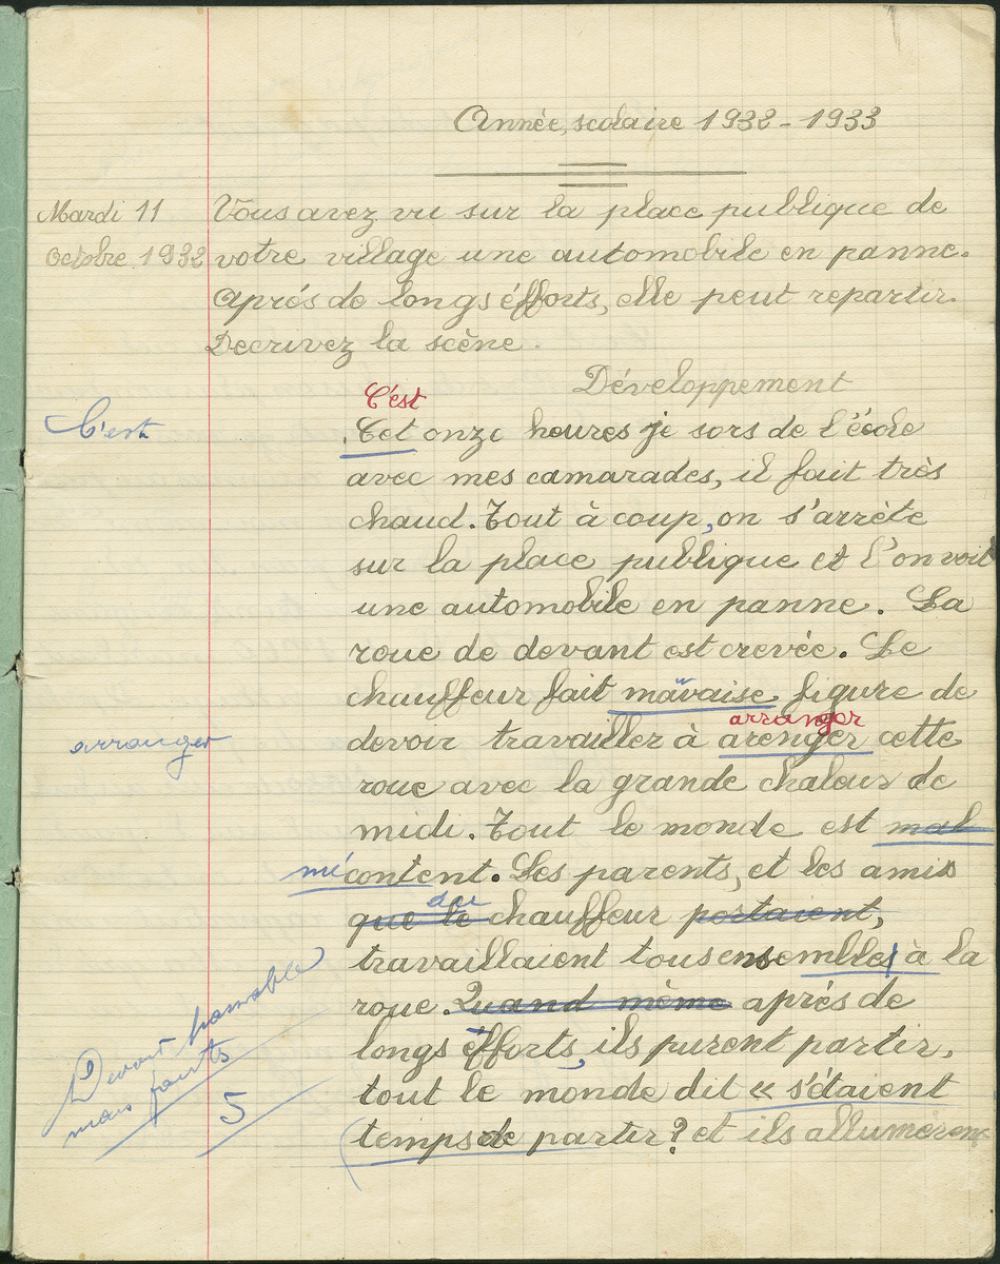 Année scolaire 1932 - 1933
Mardi 11
Octobre 1932
Vous avez vu sur la place publique de
votre village une automobile en panne.
Après de longs éfforts, elle peut repartir.
Decrivez la scène.
Développement
C'est
C'est
Cet onze heures je sors de l'école
avec mes camarades, il fait très
chaud. Tout à coup, on s'arrête
sur la place publique et l'on voit
une automobile en panne. La
roue de devant est crevée. Le
chauffeur fait mauvaise figure de
arranger
arranger
devoir travailler à arenger cette
roue avec la grande chaleur de
midi. Tout le monde est mal
mécontent. Les parents, et les amis
du
que le chauffeur portaient,
travaillaient tous ensembles à la
roue. Quand même après de
longs éfforts, ils purent partir,
tout le monde dit « s'étaient
temps de partir ? et ils allumèrent
Devoir passable
mais fautes
5